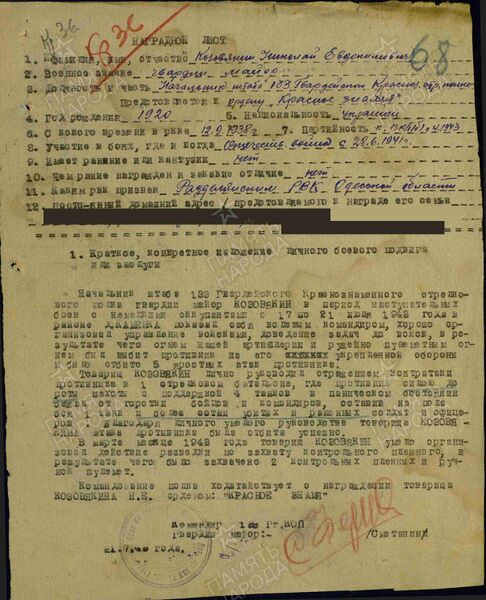 К. 36.
№ 36
68
НАГРАДНОЙ ЛИСТ
1. Фамилия, имя, отчество Козовякин Николай Евдокимович
2. Военное звание гвардии майор
3. Должность и часть Начальник штаба 133 Гвардейского Краснозн. стр. полка
Представляется к ордену "Красное знамя"
4. Год рождения 1920 5. Национальность украинец
6. С какого времени в РККА 12.9.1938 г 7. Партийность
8. Участие в боях, где и когда Отечеств. война с 28.6.1941 г.
9. Имеет ранение или контузии нет
10. Чем ранее награжден и за какие отличие нет
11. Каким РВК призван Раздельнянским РВК Одесской области
12. постоянный домашний адрес представляемого к награде его семьи
1. Краткое, конкретное изложение личного боевого подвига
или заслуги
Начальник штаба 133 Гвардейского Краснознаменного стрелко-
вого полка гвардии майор КОЗОВЯКИН в период наступательных
боев с немецкими оккупантами с 17 по 21 июля 1943 года в
районе Д.КАМЕНКА показал себя волевым командиром, хорошо ор-
ганизовал управление войсками, доведение задач до войск, в ре-
зультате чего огнем нашей артиллерии и ружейно пулеметным ог-
нем был выбит противник из его укрепленной обороны
и было отбито 5 яростных атак противника.
Товарищ КОЗОВЯКИН лично руководил отражением контратаки
противника в 1 стрелковом батальоне, где противник силою до
роты пехоты с поддержкой 4 танков в паническом состоянии
бежал от горстки бойцов и командиров, оставив на поле
боя танки и более сотни убитых и раненных солдат и офице-
ров. Благодаря личного умелого руководства товарища КОЗОВЯ-
КИНА атака противника была отбита успешно.
В марте месяце 1943 года товарищ КОЗОВЯКИН умело органи-
зовал действие разведки по захвату контрольного пленного, в
результате чего было захвачено 2 контрольных пленных и руч-
ной пулемет.
Командование полка ходатайствует о награждении товарища
КОЗОВЯКИНА Н.Е. орденом: "КРАСНОЕ ЗНАМЯ"
Командир 133 Гв.КСП
гвардии майор:- /Сметанин/
21.7.43 года.
ПАМЯТЬ НАРОДА